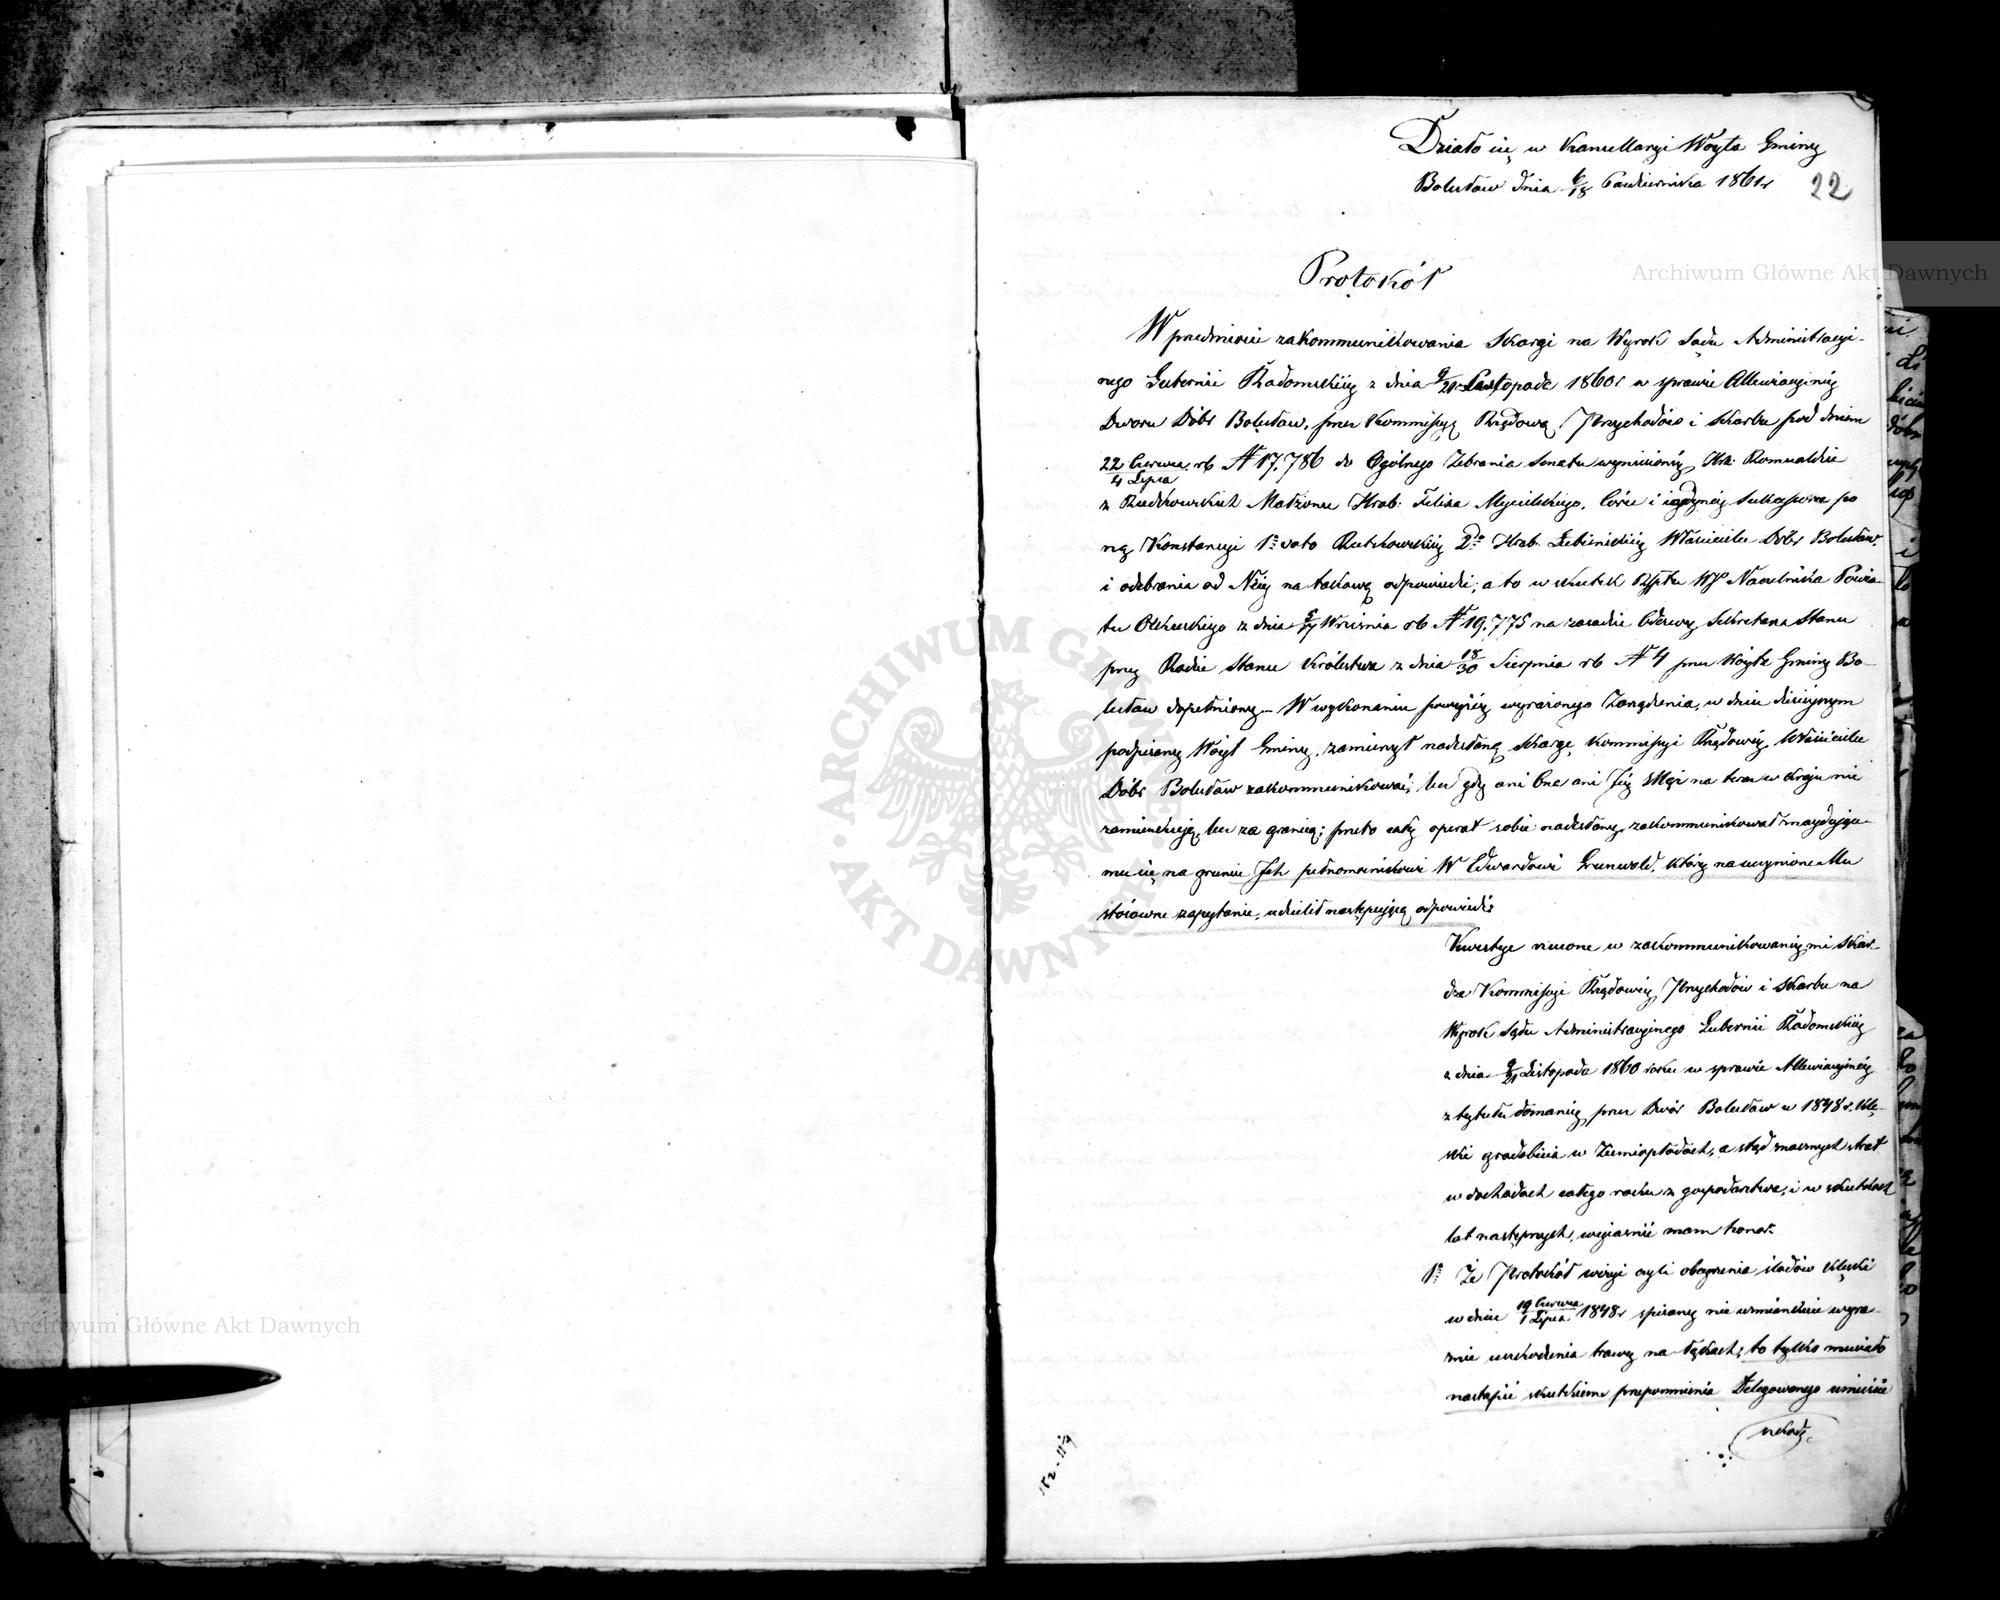 Działo się w Kancellaryi Woyta Gminy
Bolesław dnia 6/18 Października 1861r
22
Protokół
W przedmiocie zakommunikowania Skargi na Wyrok Sądu Administracyi-
nego Gubernii Radomskiej z dnia 9/21 Listopada 1860r w sprawie Allewiacyinéj
Dworu Dóbr Bolesław, przez Kommissyą Rządową Przychodów i Skarbu pod dniem
22 Czerwca/4 Lipca rb N 17,786 do Ogólnego Zebrania Senatu wyniesionéj, Hra: Romualdzie
z Rutkowskich Małżonce Hrab: Felixa Mycielskiego, Córce i jedynéj Sukcessorce po
ną Konstancyi 1º voto Rutkowskiéj 2do Hrab. Łubieńskiéj Właścicielce Dóbr Bolesław,
i odebrania od Néij na takową odpowiedzi; a to w skutek Rssptu WJP Naczelnika Powia-
tu Olkuskiego z dnia 5/17 Września rb N 19,775 na zasadzie Odezwy Sekretarza Stanu
przy Radzie Stanu Królestwa z dnia 18/30 Sierpnia rb N 4 przez Wójta Gminy Bo-
lesław dopełniony.- W wykonaniu powyżéj wyrażonego Zarządzenia, w dniu dzisiejszym
podpisany Wójt Gminy, zamierzył nadesłaną Skargę Kommissyi Rządowéj, Właścicielce
Dóbr Bolesław zakommunikować; lecz gdy ani Ona ani Jéj Mąż na teraz w kraju nie
zamieszkują, lecz za granicą; przeto cały operat sobie nadesłany, zakommunikował znajdujące-
mu się na gruncie Ich pełnomocnikowi W Edwardowi Grunwald, który na uczynione Mu
stósowne zapytanie, udzielił następującą odpowiedź:
Kwestye wniesione w zakommunikowanéj mi Skar-
dze Kommissyi Rządowéj Przychodów i Skarbu na
Wyrok Sądu Administracyjnego Gubernii Radomskiéj
z dnia 9/21 Listopada 1860 roku w sprawie Allewiacyinéj
z tytułu doznanéj przez Dwór Bolesław w 1848 r. klę-
ski gradobicia w Ziemiopłodach, a stąd znacznych strat
w dochodach całego roku z gospodarstwa, i w skutkach
lat następnych, wyjaśnić mam honor.
1º Że Protokół wizyi czyli obejrzenia śladów klęski
w dniu 19 Czerwca/1 Lipca 1848r spisany nie wzmiankuje wyra-
źnie uszkodzenia trawy na łąkach; to tylko musiało
nastąpić skutkiem przepomnienia Delegowanego umieście